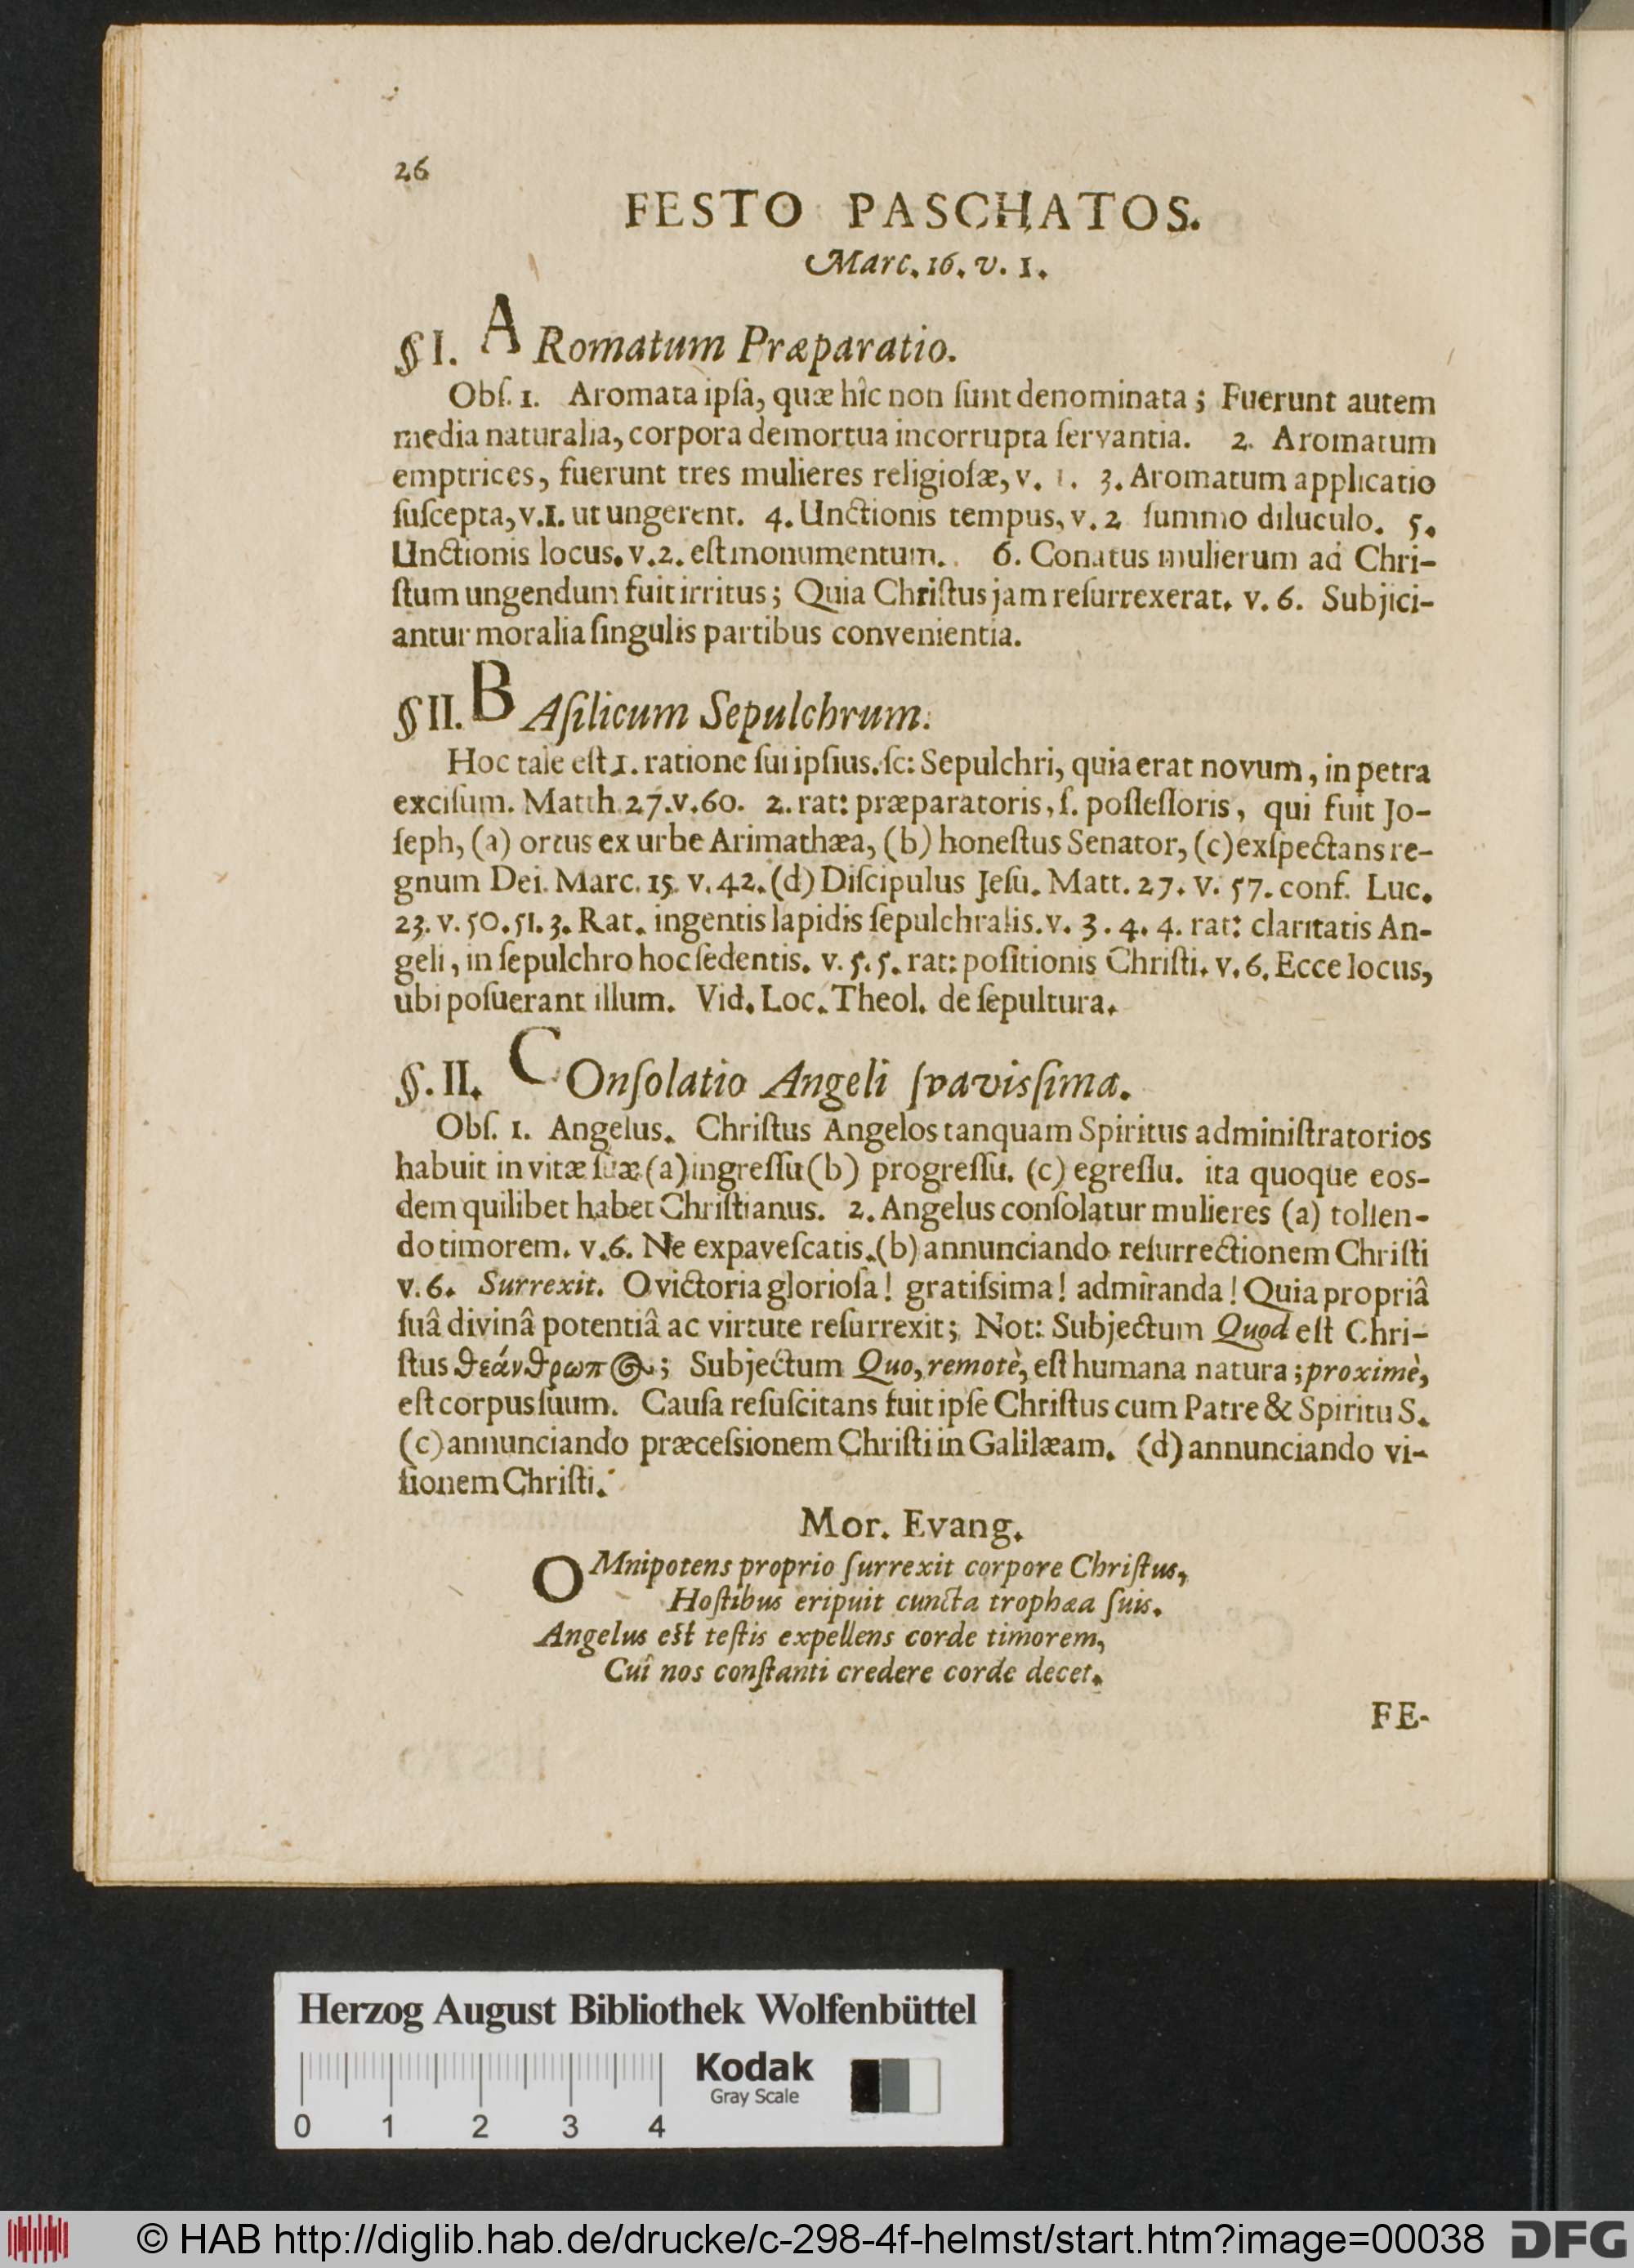 26
FESTO PASCHATOS.
Marc. 16. v. 1.
§ I. ARomatum Præparatio.
Obſ. 1. Aromata ipſa, quæ hîc non ſunt denominata; Fuerunt autem
media naturalia, corpora demortua incorrupta ſervantia. 2. Aromatum
emptrices, fuerunt tres mulieres religioſæ, v. 1. 3. Aromatum applicatio
ſuſcepta, v. 1. ut ungerent. 4. Unctionis tempus, v. 2 ſummo diluculo. 5.
Unctionis locus. v. 2. eſt monumentum. 6. Conatus mulierum ad Chri-
ſtum ungendum fuit irritus; Quia Chriſtus jam reſurrexerat. v. 6. Subjici-
antur moralia ſingulis partibus convenientia.
§ II. BAſilicum Sepulchrum.
Hoc tale eſt 1. ratione ſui ipſius. ſc: Sepulchri, quia erat novum, in petra
exciſum. Matth. 27. v. 60. 2. rat: præparatoris, ſ. poſſeſſoris, qui fuit Jo-
ſeph, (a) ortus ex urbe Arimathæa, (b) honeſtus Senator, (c) exſpectans re-
gnum Dei. Marc. 15. v. 42. (d) Diſcipulus Jeſu. Matt. 27. v. 57. conf. Luc.
23. v. 50. 51. 3. Rat. ingentis lapidis ſepulchralis. v. 3. 4. 4. rat: claritatis An-
geli, in ſepulchro hoc ſedentis. v. 5. 5. rat: poſitionis Chriſti. v. 6. Ecce locus,
ubi poſuerant illum. Vid. Loc. Theol. de ſepultura.
§. II. COnſolatio Angeli ſvaviſſima.
Obſ. 1. Angelus. Chriſtus Angelos tanquam Spiritus adminiſtratorios
habuit in vitæ ſuæ (a) ingreſſu (b) progreſſu. (c) egreſſu. ita quoque eos-
dem quilibet habet Chriſtianus. 2. Angelus conſolatur mulieres (a) tollen-
do timorem. v. 6. Ne expaveſcatis. (b) annunciando reſurrectionem Chriſti
v. 6. Surrexit. O victoria glorioſa! gratiſsima! admiranda! Quia propriâ
ſuâ divinâ potentiâ ac virtute reſurrexit; Not: Subjectum Quod eſt Chri-
ſtus θεάνθρωπ<span>ος</span>; Subjectum Quo, remotè, eſt humana natura; proximè,
eſt corpus ſuum. Cauſa reſuſcitans fuit ipſe Chriſtus cum Patre & Spiritu S.
(c) annunciando præceſsionem Chriſti in Galilæam. (d) annunciando vi-
ſionem Chriſti.
Mor. Evang.
OMnipotens proprio ſurrexit corpore Chriſtus,
Hoſtibus eripuit cuncta trophæa ſuis.
Angelus eſt teſtis expellens corde timorem,
Cui nos conſtanti credere corde decet.
FE-
Herzog August Bibliothek Wolfenbüttel
Kodak
Gray Scale
0 1 2 3 4
© HAB http://diglib.hab.de/drucke/c-298-4f-helmst/start.htm?image=00038
DFG